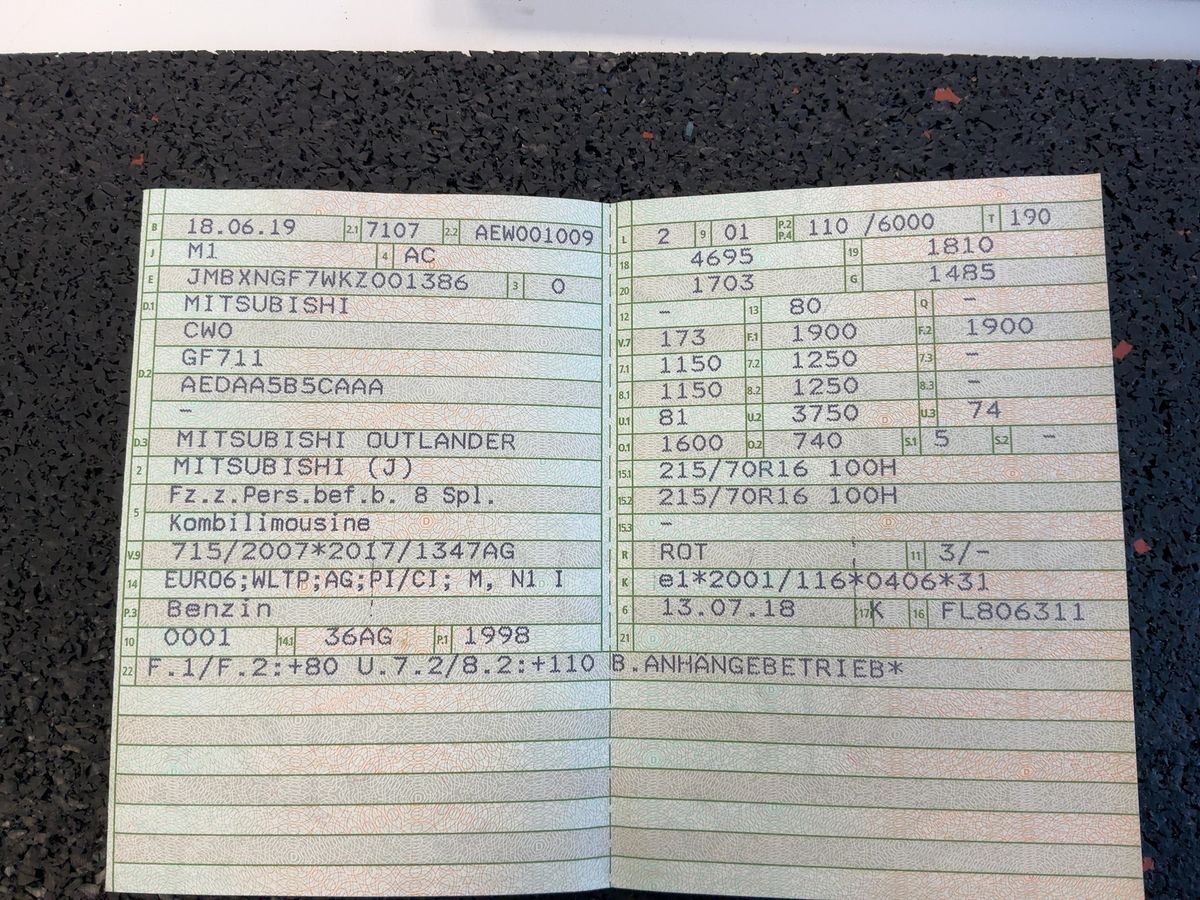 B 18.06.19 2.1 7107 2.2 AEW001009
J M1 4 AC
E JMBXNGF7WKZ001386 3 0
D.1 MITSUBISHI
CW0
D.2 GF711
AEDAA5B5CAAA
–
D.3 MITSUBISHI OUTLANDER
2 MITSUBISHI (J)
5 Fz.z.Pers.bef.b. 8 Spl.
Kombilimousine
V.9 715/2007*2017/1347AG
14 EURO6;WLTP;AG;PI/CI; M, N1 I
P.3 Benzin
10 0001 14.1 36AG P.1 1998
L 2 9 01 P.2 P.4 110 /6000 T 190
18 4695 19 1810
20 1703 G 1485
12 – 13 80 Q –
V.7 173 F.1 1900 F.2 1900
7.1 1150 7.2 1250 7.3 –
8.1 1150 8.2 1250 8.3 –
U.1 81 U.2 3750 U.3 74
O.1 1600 O.2 740 S.1 5 S.2 –
15.1 215/70R16 100H
15.2 215/70R16 100H
15.3 –
R ROT 11 3/–
K e1*2001/116*0406*31
6 13.07.18 17 K 16 FL806311
21
22 F.1/F.2:+80 U.7.2/8.2:+110 B.ANHÄNGEBETRIEB*